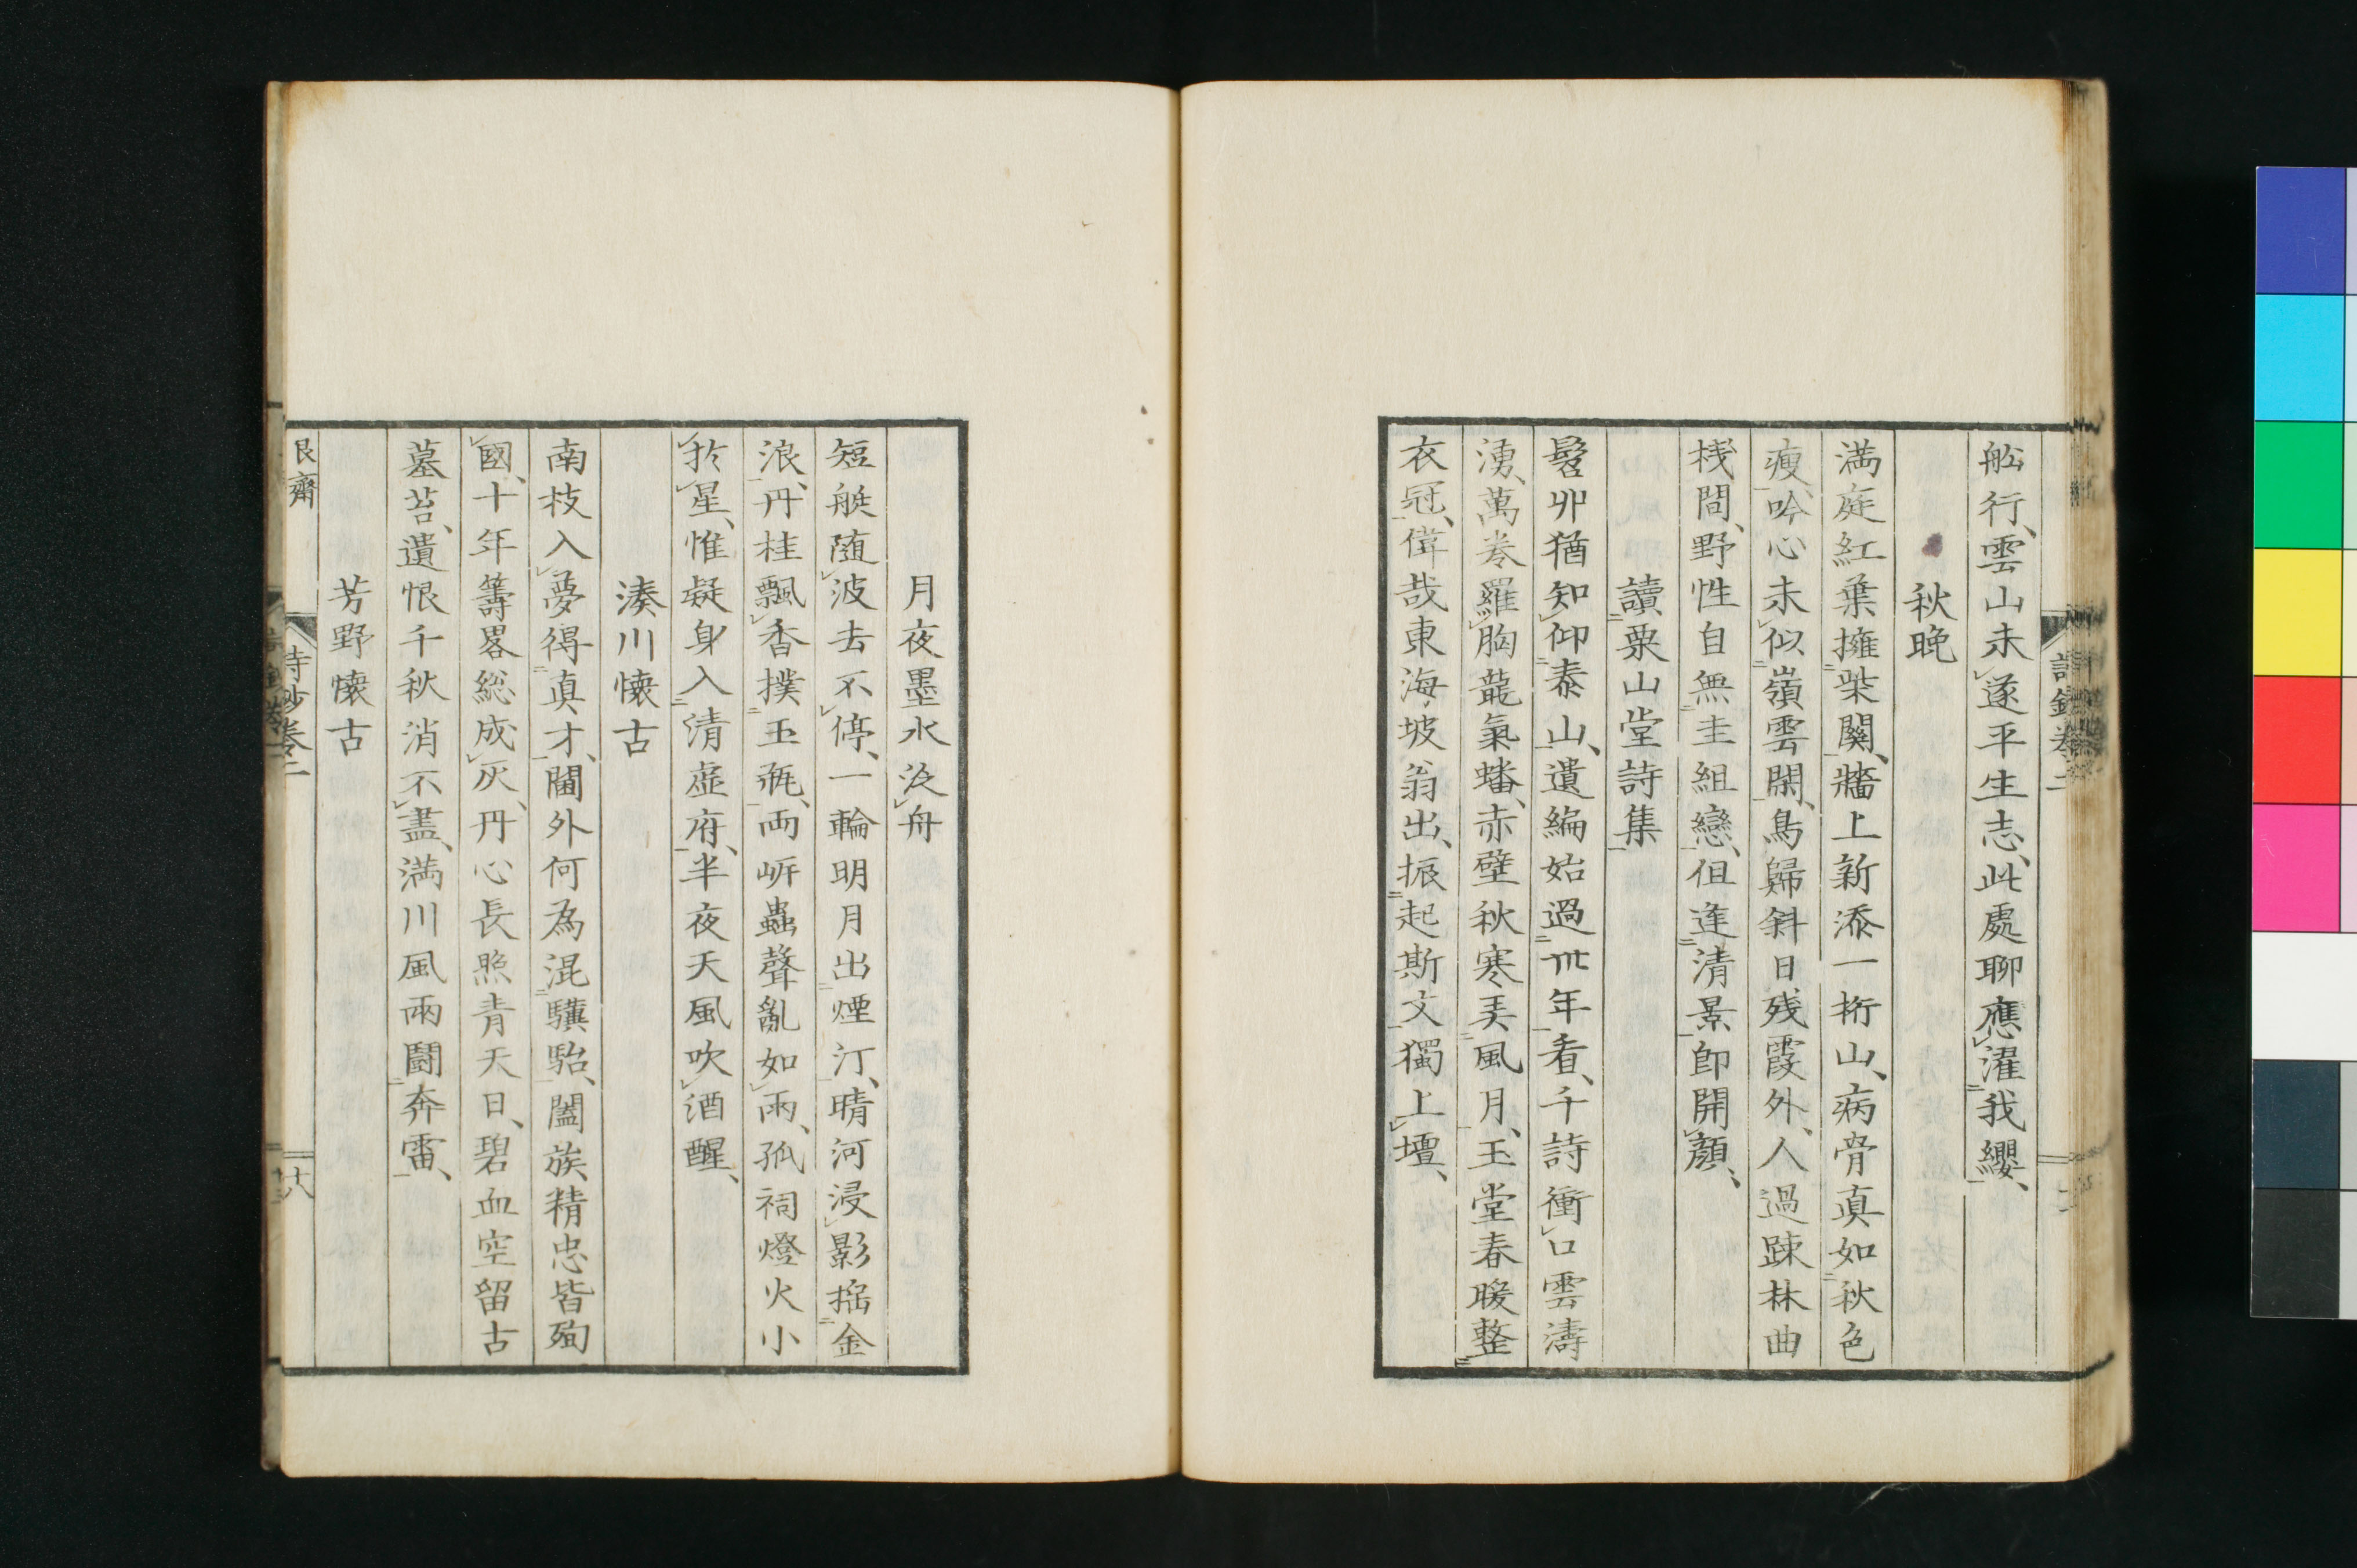 舩行、雲山未遂平生志、此處聊應濯我纓、
秋晩
満庭紅葉擁柴關、牆上新添一桁山、病骨真如秋色
瘦、吟心未似嶺雲閑、鳥歸斜日残霞外、人過踈林曲
桟間、野性自無圭組戀、但逢清景即開顔、
讀粟山堂詩集
髫丱猶知仰泰山、遺編始過卅年看、千詩衝口雲濤
湧、萬巻羅胸龍氣蟠、赤壁秋寒弄風月、玉堂春暖整
衣冠、偉哉東海坡翁出、振起斯文獨上壇、
月夜墨水泛舟
短艇随波去不停、一輪明月出煙汀、晴河浸影揺金
浪、丹桂飄香撲玉瓶、両岍蟲聲亂如雨、孤祠燈火小
於星、惟疑身入清虚府、半夜天風吹酒醒、
湊川懐古
南枝入夢得真才、閫外何為混驥駘、闔族精忠皆殉
國、十年籌畧総成灰、丹心長照青天日、碧血空留古
墓苔、遺恨千秋消不盡、満川風雨闘奔雷、
芳野懐古
艮齋
詩鈔巻二
十八